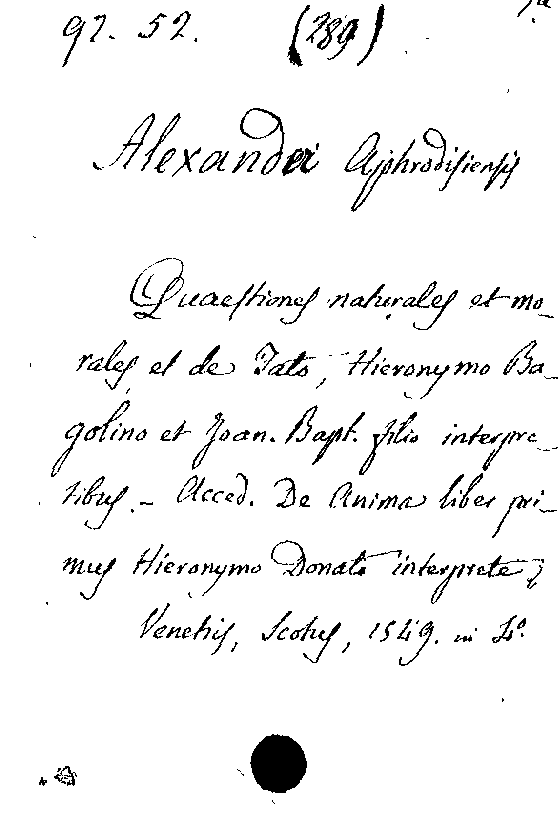 92. 52. (289)
Alexandri Aphrodisiensis
Quaestiones naturales et mo-
rales et de Fato, Hieronymo Ba-
golino et Joan. Bapt. filio interpre-
tibus. - Acced. De Anima liber pri-
mus Hieronymo Donato interprete;
Venetiis, Scotus, 1549. in 4o.